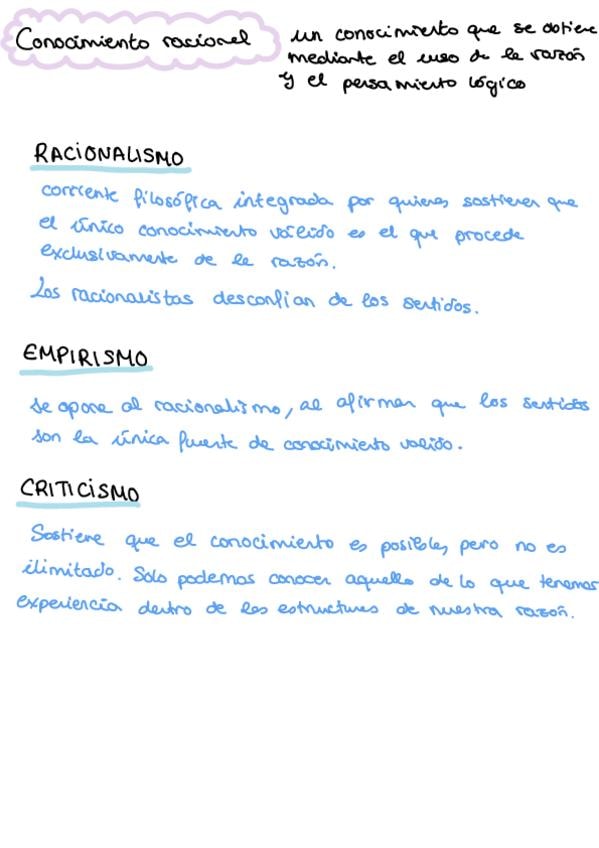 Conocimiento racional
un conocimiento que se obtiene
mediante el uso de la razón
y el pensamiento lógico
RACIONALISMO
corriente filosófica integrada por quienes sostienen que
el único conocimiento válido es el que procede
exclusivamente de la razón.
Los racionalistas desconfían de los sentidos.
EMPIRISMO
Se opone al racionalismo, al afirmar que los sentidos
son la única fuente de conocimiento valido.
CRITICISMO
Sostiene que el conocimiento es posible, pero no es
ilimitado. Solo podemos conocer aquello de lo que tenemos
experiencia dentro de las estructuras de nuestra razón.